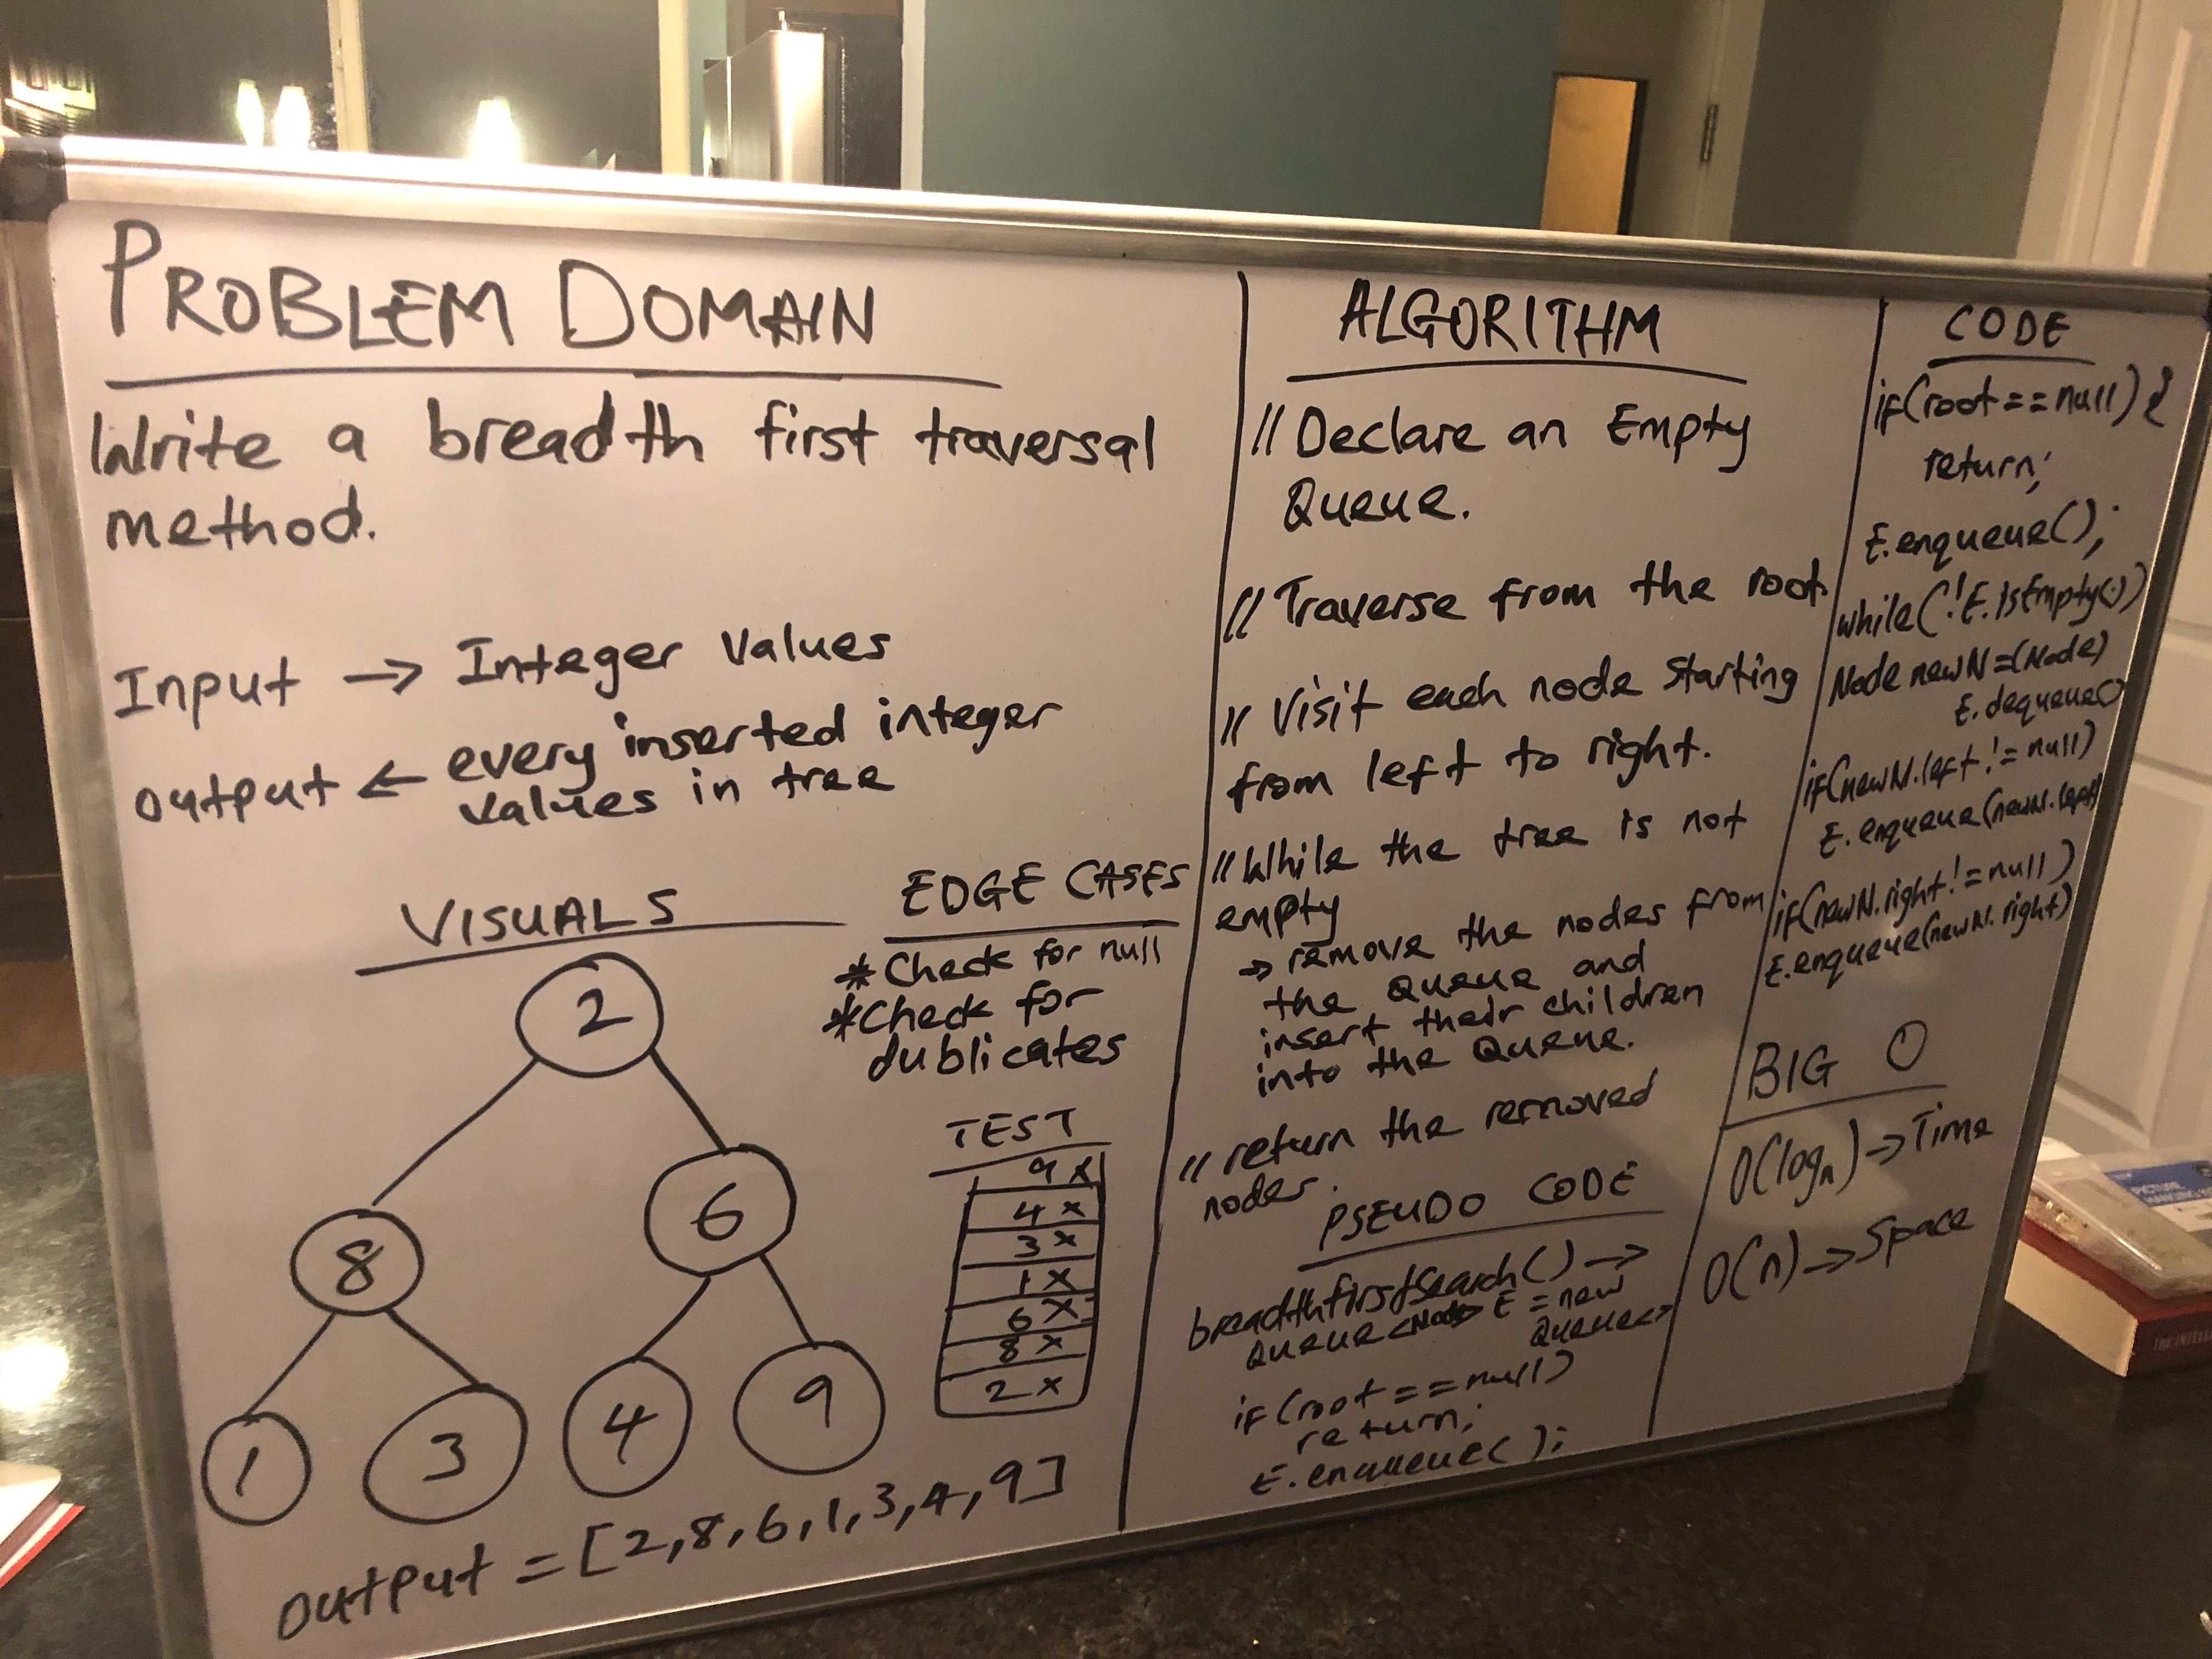 PROBLEM DOMAIN
Write a breadth first traversal
method.
Input → Integer Values
output ← every inserted integer
values in tree
VISUALS
2
8
6
1
3
4
9
output = [2,8,6,1,3,4,9]
EDGE CASES
* Check for null
* Check for
dublicates
TEST
9 x
4 x
3 x
1 x
6 x
8 x
2 x
ALGORITHM
// Declare an Empty
Queue.
// Traverse from the root
// Visit each node starting
from left to right.
// While the tree is not
empty
→ remove the nodes from
the Queue and
insert their children
into the Queue.
// return the removed
nodes.
PSEUDO CODE
breadthfirstsearch() →
Queue<Node> E = new
Queue<>
if (root == null)
return;
E.enqueue( );
CODE
if(root == null) {
return;
E.enqueue();
while(!E.isEmpty())
Node newN=(Node)
E.dequeue()
if(newN.left != null)
E.enqueue(newN.left)
if(newN.right != null)
E.enqueue(newN.right)
BIG O
O(logn) → Time
O(n) → Space
THE INTELL